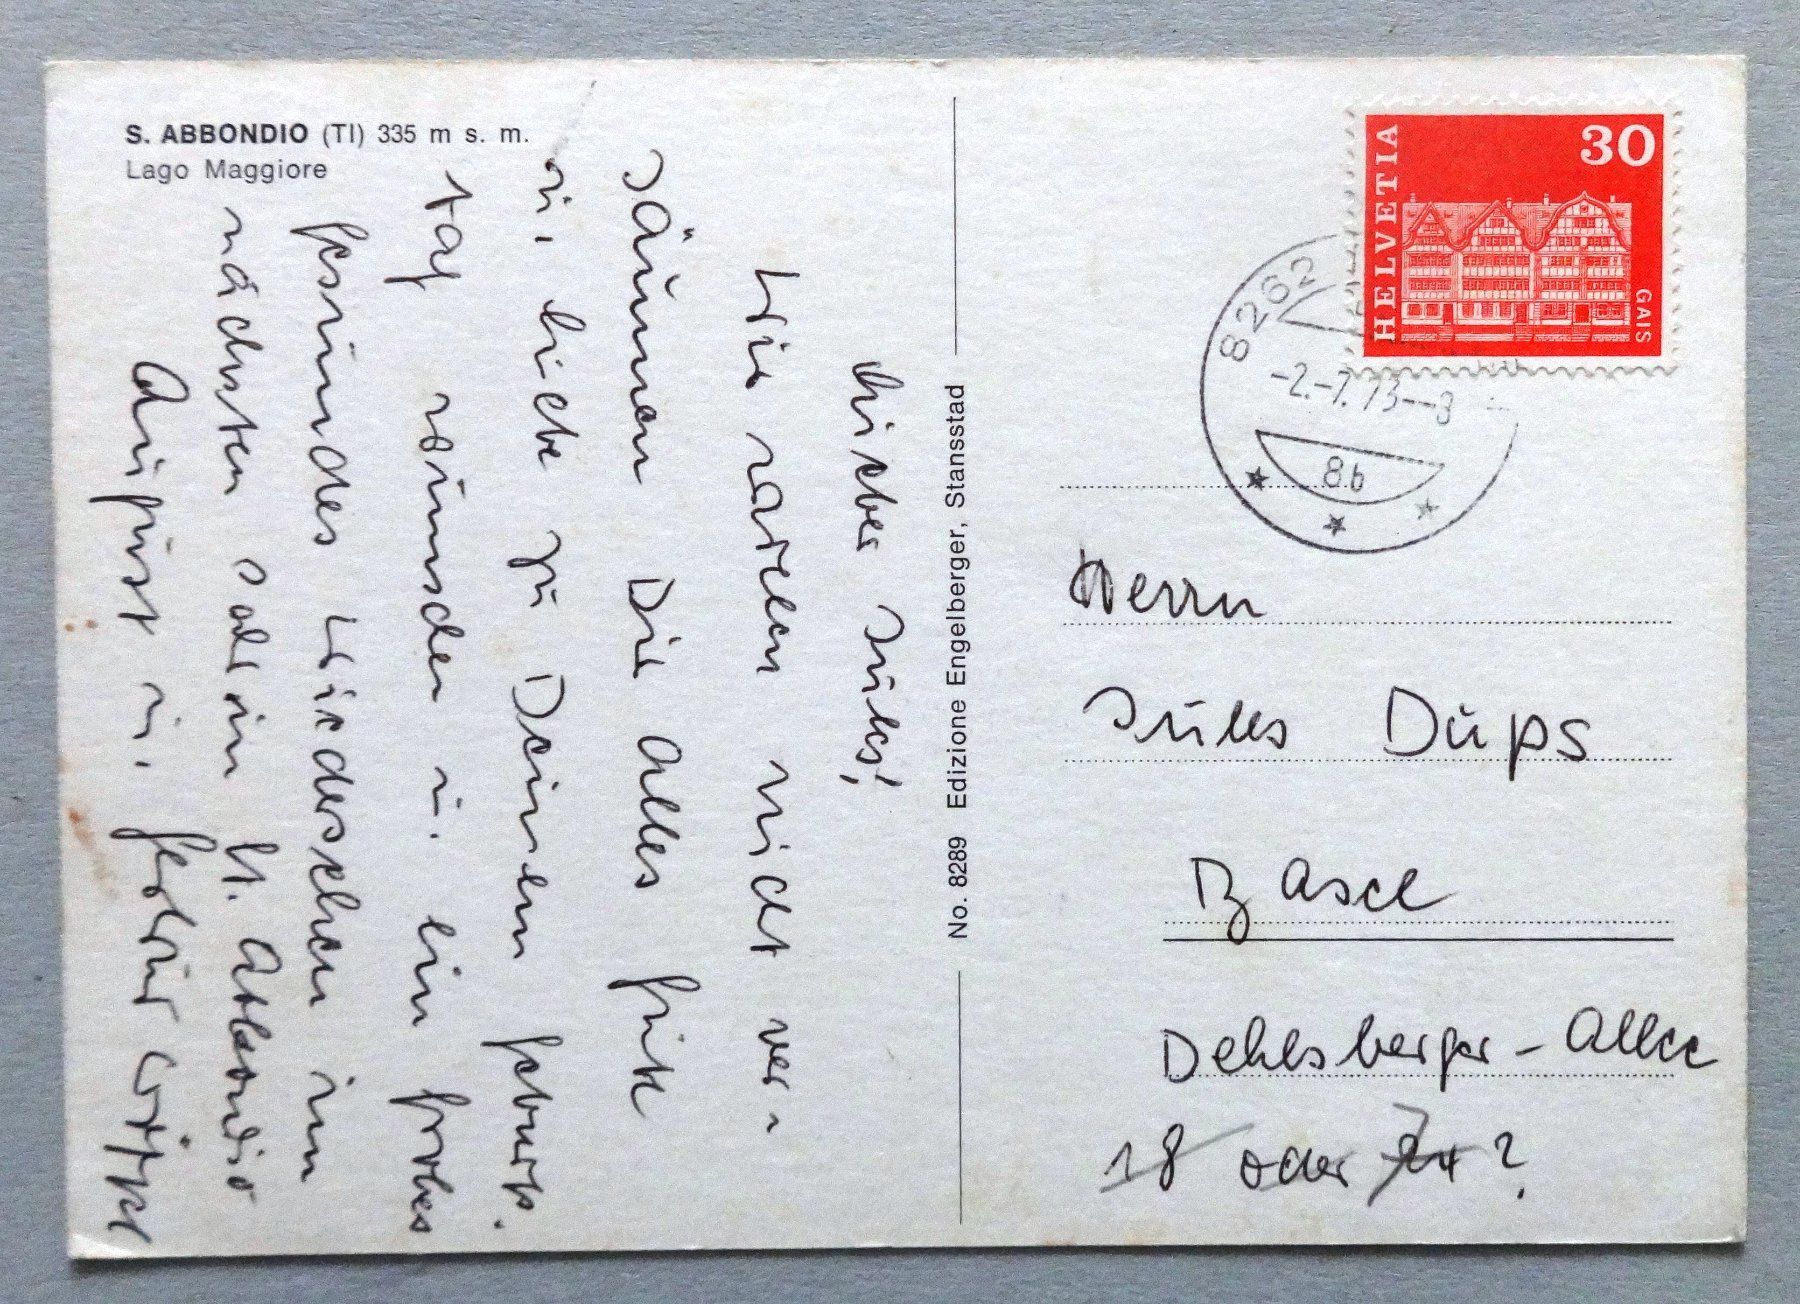 S. ABBONDIO (TI) 335 m s. m.
Lago Maggiore
Lieber Jules!
Wir wollen nicht ver-
säumen Dir alles Gute
u. Liebe zu Deinem Geburts-
tag wünschen u. ein frohes
gesundes Wiedersehen im
nächsten Jahr in St. Abbondio
August u.
No. 8289 Edizione Engelberger, Stansstad
HELVETIA
30
GAIS
8262
-2.-7.73--8
8b
Herrn
Jules Düps
Basel
Dehlsberger-Allee
18 oder 24?